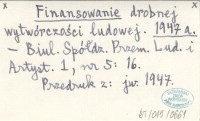 Finansowanie drobnej
wytwórczości ludowej. 1947 a.
— Biul. Spółdz. Przem. Lud. i
Artyst. 1, nr 5: 16.
Przedruk z: jw. 1947.